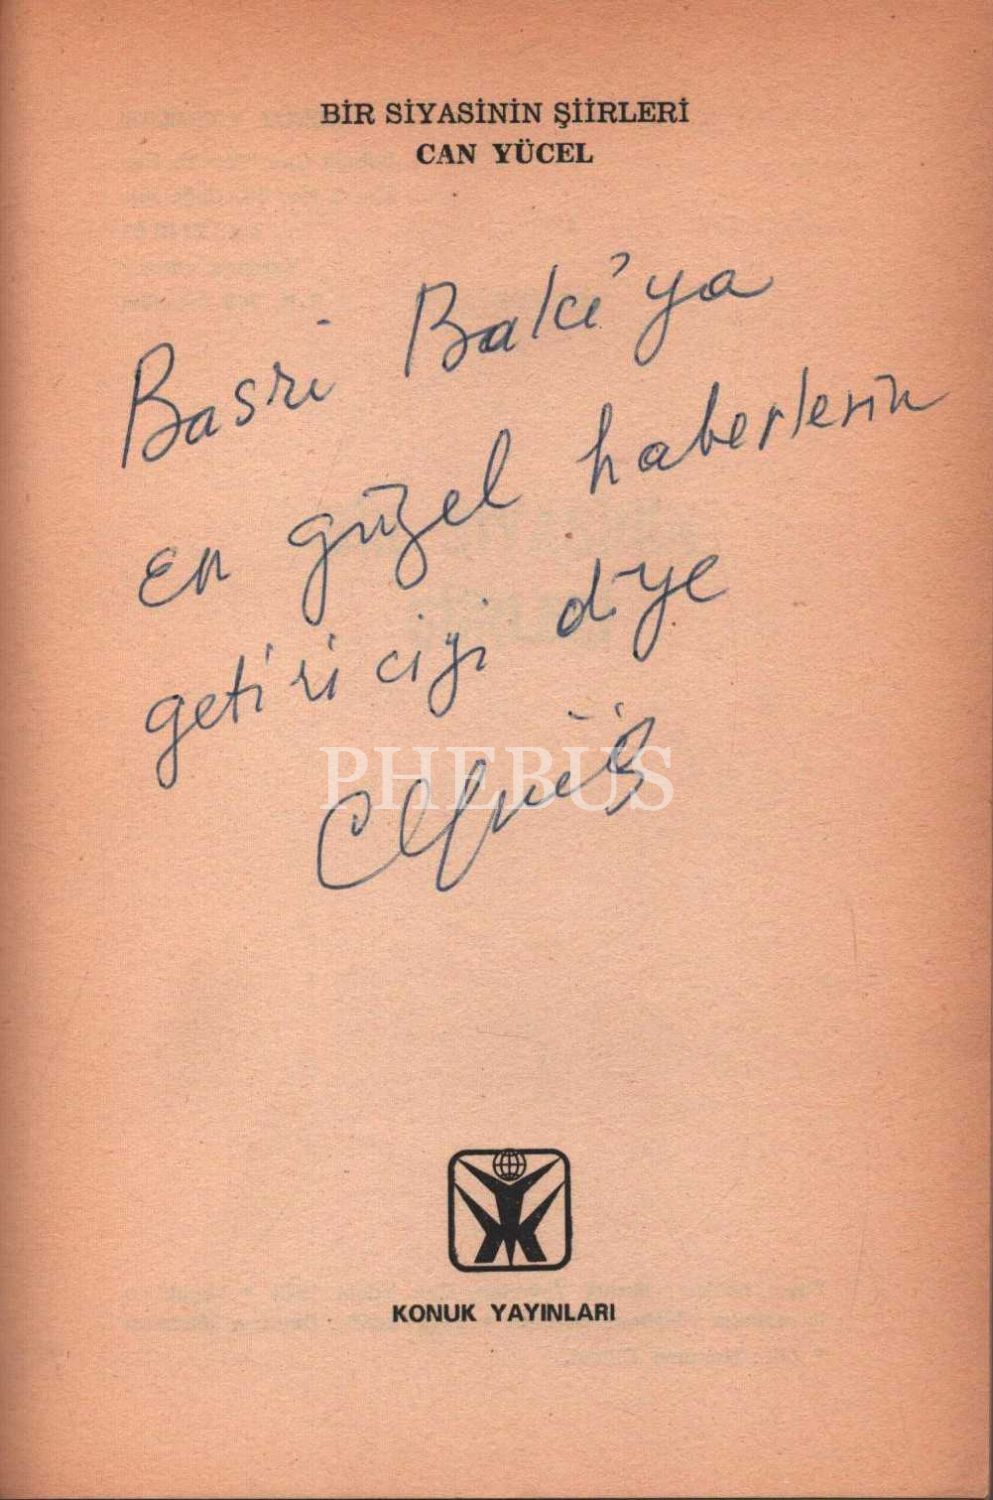 BİR SİYASİNİN ŞİİRLERİ
CAN YÜCEL
Basri Balcı'ya
en güzel haberlerin
getiriciği diye
PHEBUS
KONUK YAYINLARI